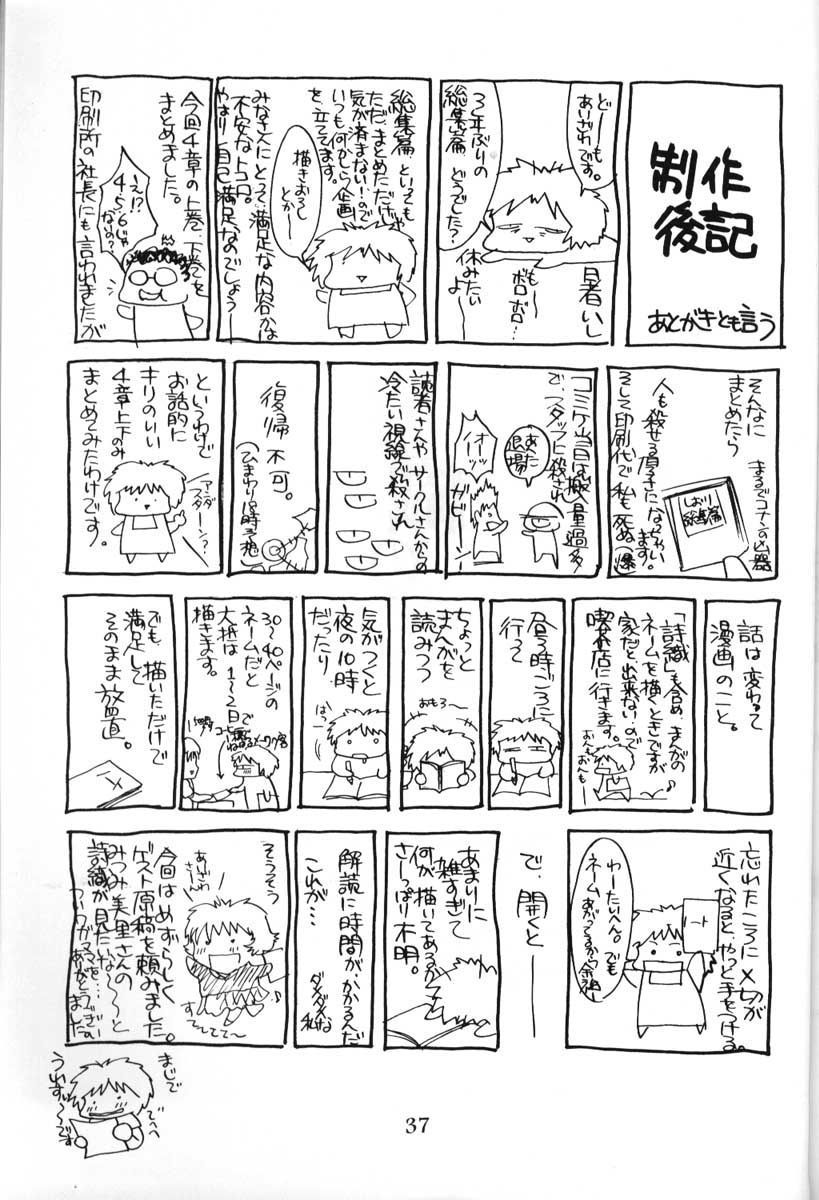 制作
後記
あとがきとも言う
どーも
あいざわです。
3年ぶりの
総集篇、どうでした?
暑いし
もー
ボロボロ…
休みたい
よー
総集篇、といっても
ただまとめただけじゃ
気が済まない!ので
いつも何かしら企画
を立てます。
描きおろし
とかー
みなさんにとって満足な内容かは
不安なトコロ。
やはり自己満足なのでしょうー
今回4章の上巻、下巻を
まとめました。
え!?
4、5、6じゃ
ないの?
印刷所の社長にも言われましたが
そんなに
まとめたら
まるでコナンの凶器
しおり
総集篇
人も殺せる厚さになっちゃい
ます。
そして印刷代で私も死ぬ(爆)
コミケ当日は搬入量過多
で、スタッフに殺され
あんた
退場
オイッ
読者さんやサークルさんからの
冷たい視線で殺され
復帰不可。
というわけで
お話的に
キリのいい
4章上下のみ
まとめてみたわけです。
アンダ
スターン?
話は変わって
漫画のこと。
「詩織」も含め、まんがの
ネームを描くときですが
家だと出来ないので
喫茶店に行きます。
行って
ちょっと
まんがを
読みつつ
おもろ〜
気がつくと
夜の10時
だったり
はっ
30〜40ページの
ネームだと
大抵は1〜2日で
描きます。
でも、描いただけで
満足して
そのまま放置。
忘れたころに〆切が
近くなると、やっと手をつける。
わーたいへん。でも
ネームあがってるから
で、開くと――
あまりに
雑すぎて
何が描いてあるか
さーっぱり不明。
解読に時間がかかるんだ
これが…
ダメダメな
私
そうそう
あいざわ
さーん
今回はめずらしく
ゲスト原稿を頼みました。
みつみ美里さんの
詩織が見たいな〜〜と
ありがとうございました
まじで
うれすぃ〜〜です
でへへ
37